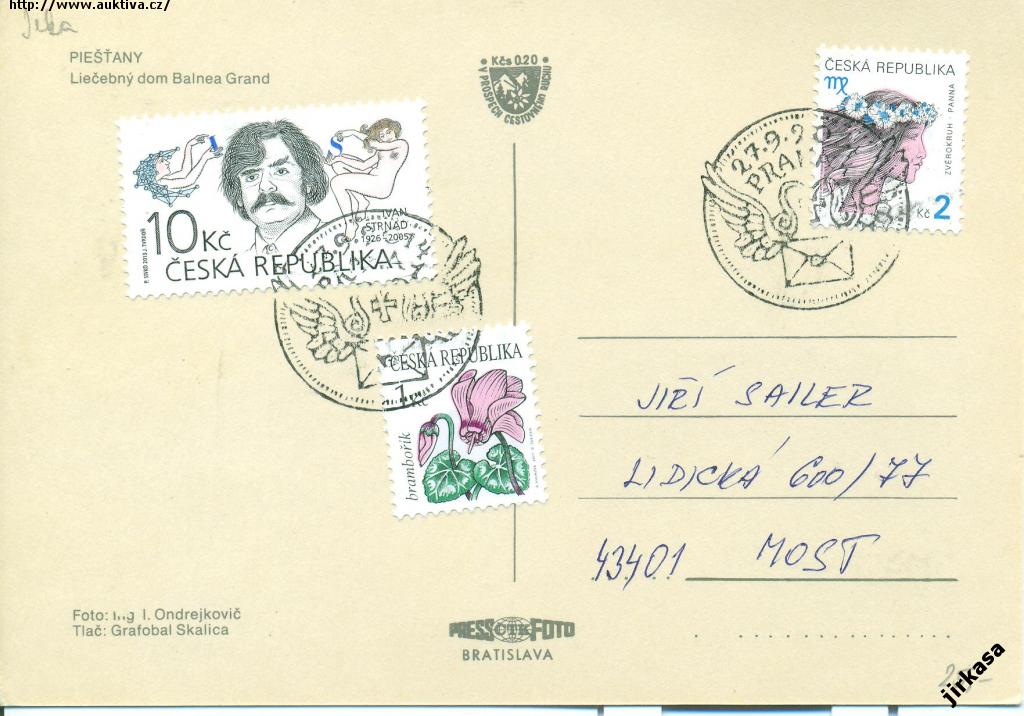 http://www.auktiva.cz/
PIEŠŤANY
Liečebný dom Balnea Grand
Kčs 0.20
V PROSPECH CESTOVNÉHO RUCHU
ČESKÁ REPUBLIKA
ZVĚROKRUH - PANNA
Kč 2
27.9.20
I S
IVAN
STRNAD
1926-2005
10 Kč
ČESKÁ REPUBLIKA
ČESKÁ REPUBLIKA
1 Kč
brambořík
JIŘÍ SAILER
LIDICKÁ 600/77
43401 MOST
Foto: Ing I. Ondrejkovič
Tlač: Grafobal Skalica
PRESSFOTO
BRATISLAVA
jirkasa